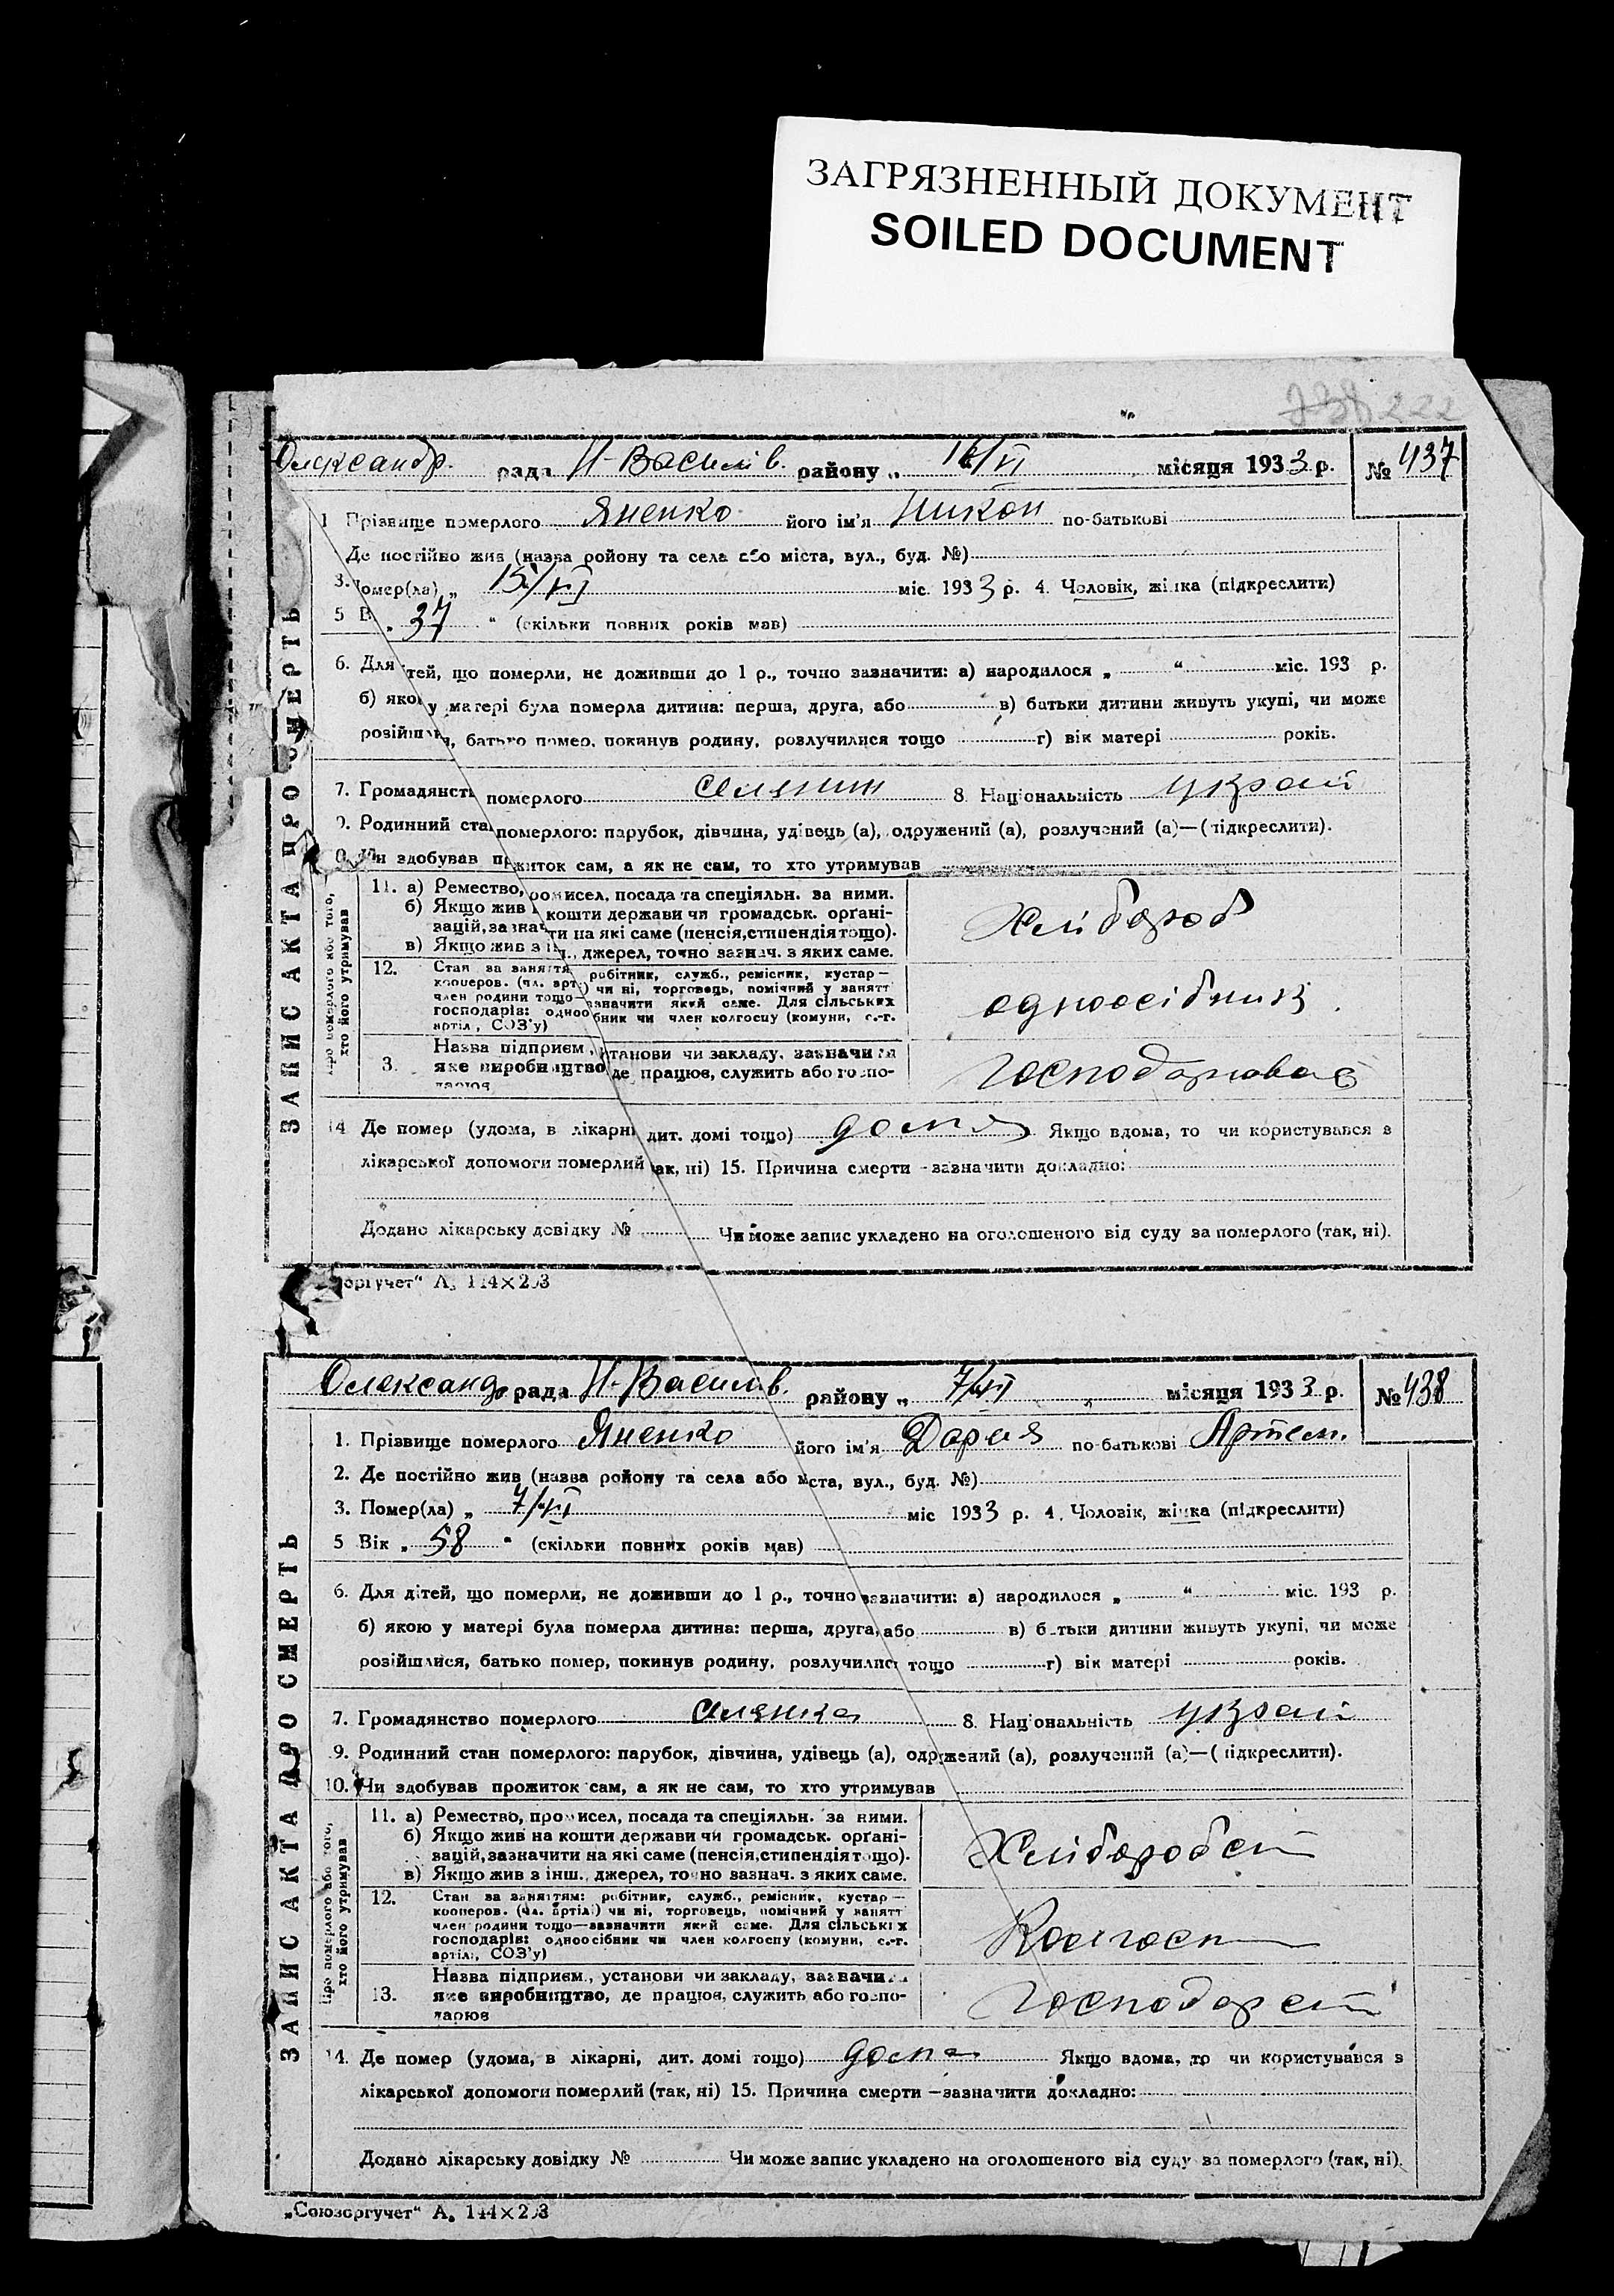 ЗАГРЯЗНЕННЫЙ ДОКУМЕНТ
SOILED DOCUMENT
222
Олександр. рада Н-Василів. району „ 16/VI місяця 1933 р. № 437
ЗАПИС АКТА ПРО СМЕРТЬ
1 Прізвище померлого Яненко його ім'я Никон по-батькові
Де постійно жив (назва ройону та села або міста, вул., буд. №)
3. омер(ла) „ 15/VI міс. 1933 р. 4. Чоловік, жінка (підкреслити)
5 В „ 37 “ (скільки повних років мав)
6. Для тей, що померли, не доживши до 1 р., точно зазначити: а) народилося „ “ міс. 193 р.
б) якою у матері була померла дитина: перша, друга, або в) батьки дитини живуть укупі, чи може
розійшл я, батько помер, покинув родину, розлучилися тощо г) вік матері років.
7. Громадянств померлого селянин 8. Національність україн
9. Родинний ста померлого: парубок, дівчина, удівець (а), одружений (а), розлучений (а)—(підкреслити).
Чи здобував прожиток сам, а як не сам, то хто утримував
Про померлого або того, хто його утримував
11. а) Ремество, промисел, посада та спеціяльн. за ними.
б) Якщо жив кошти держави чи громадськ. органі-
зацій, зазначити на які саме (пенсія, стипендія тощо).
в) Якщо жив з ін., джерел, точно зазнач. з яких саме.
Хлібороб
12. Стан за заняття робітник, служб., ремісник, кустар—
кооперов. (чл. арт.) чи ні, торговець, помічний у занятт
член родини тощо—зазначити який саме. Для сільських
господарів: одноосібник чи член колгоспу (комуни, с.-г.
артіл., СОЗ'у)
одноосібник.
3. Назва підприєм., установи чи закладу, зазначити
яке виробництво, де працює, служить або госпо-
дарює
Господарював
14 Де помер (удома, в лікарні дит. домі тощо) дома Якщо вдома, то чи користувався з
лікарської допомоги померлий так, ні) 15. Причина смерти - зазначити докладно:
Додано лікарську довідку № Чи може запис укладено на оголошеного від суду за померлого (так, ні).
оргучет“ А. 144×203
Олександр рада Н-Василів. району „ 7/VII „ місяця 1933 р. № 438
ЗАПИС АКТА ПРО СМЕРТЬ
1. Прізвище померлого Яненко його ім'я Дарія по-батькові Артем.
2. Де постійно жив (назва ройону та села або міста, вул., буд. №)
3. Помер(ла) „ 7/VII міс 1933 р. 4. Чоловік, жінка (підкреслити)
5 Вік „ 58 “ (скільки повних років мав)
6. Для дітей, що померли, не доживши до 1 р., точно зазначити: а) народилося „ “ міс. 193 р.
б) якою у матері була померла дитина: перша, друга, або в) батьки дитини живуть укупі, чи може
розійшлися, батько помер, покинув родину, розлучились тощо г) вік матері років.
7. Громадянство померлого селянка 8. Національність україн
9. Родинний стан померлого: парубок, дівчина, удівець (а), одружений (а), розлучений (а)—(підкреслити).
10. Чи здобував прожиток сам, а як не сам, то хто утримував
Про померлого або того, хто його утримував
11. а) Ремество, промисел, посада та спеціяльн. за ними.
б) Якщо жив на кошти держави чи громадськ. органі-
зацій, зазначити на які саме (пенсія, стипендія тощо).
в) Якщо жив з інш., джерел, точно зазнач. з яких саме.
12. Стан за заняттям: робітник, служб., ремісник, кустар—
кооперов. (чл. артілі) чи ні, торговець, помічний у занятт
член родини тощо—зазначити який саме. Для сільських
господарів: одноосібник чи член колгоспу (комуни, с.-г.
артілі, СОЗ'у)
Колгосп
13. Назва підприєм., установи чи закладу, зазначити
яке виробництво, де працює, служить або госпо-
дарює
14. Де помер (удома, в лікарні, дит. домі тощо) дома Якщо вдома, то чи користувався з
лікарської допомоги померлий (так, ні) 15. Причина смерти - зазначити докладно:
Додано лікарську довідку № Чи може запис укладено на оголошеного від суду за померлого (так, ні).
„Союзоргучет“ А. 144×203